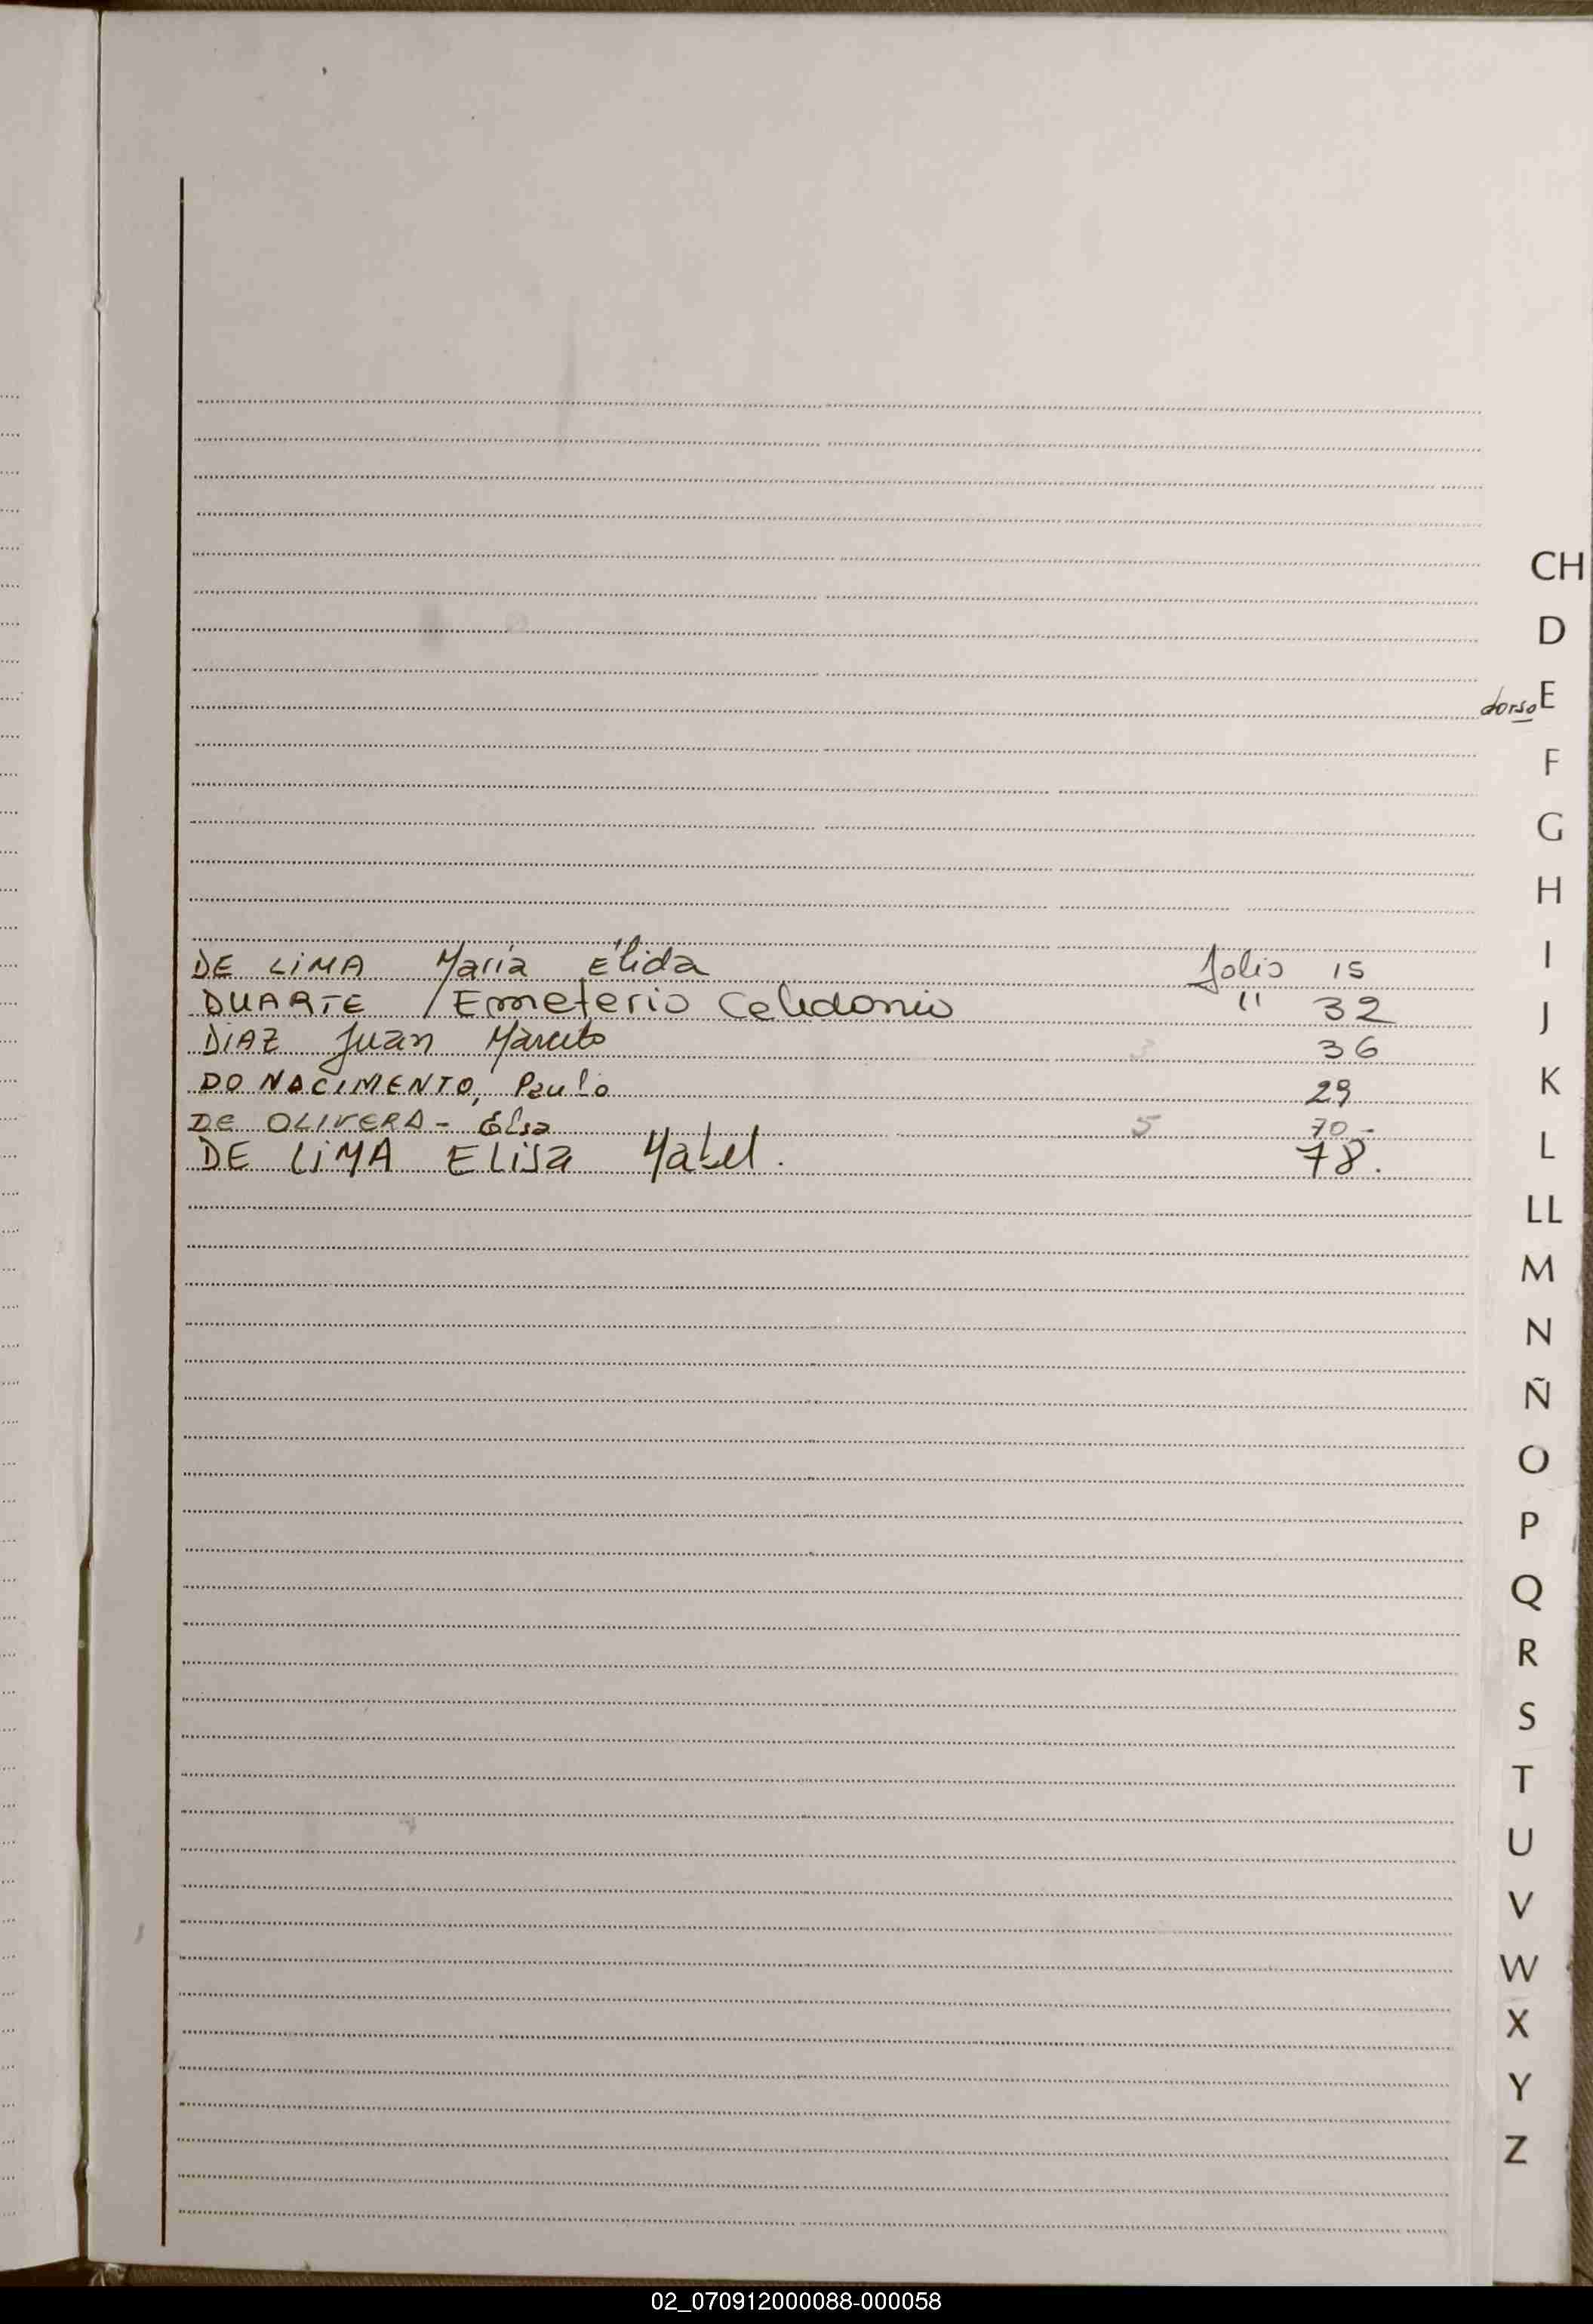 CH
D
dorso E
F
G
H
I
DE LIMA María Elida folio 15
DUARTE Emeterio Celedonio " 32
J
DIAZ Juan Marcelo 36
K
DO NACIMENTO, Paulo 29
DE OLIVERA - Elsa 5 70 -
L
DE LIMA ELisa Mabel. 78.
LL
M
N
Ñ
O
P
Q
R
S
T
U
V
W
X
Y
Z
02_070912000088-000058